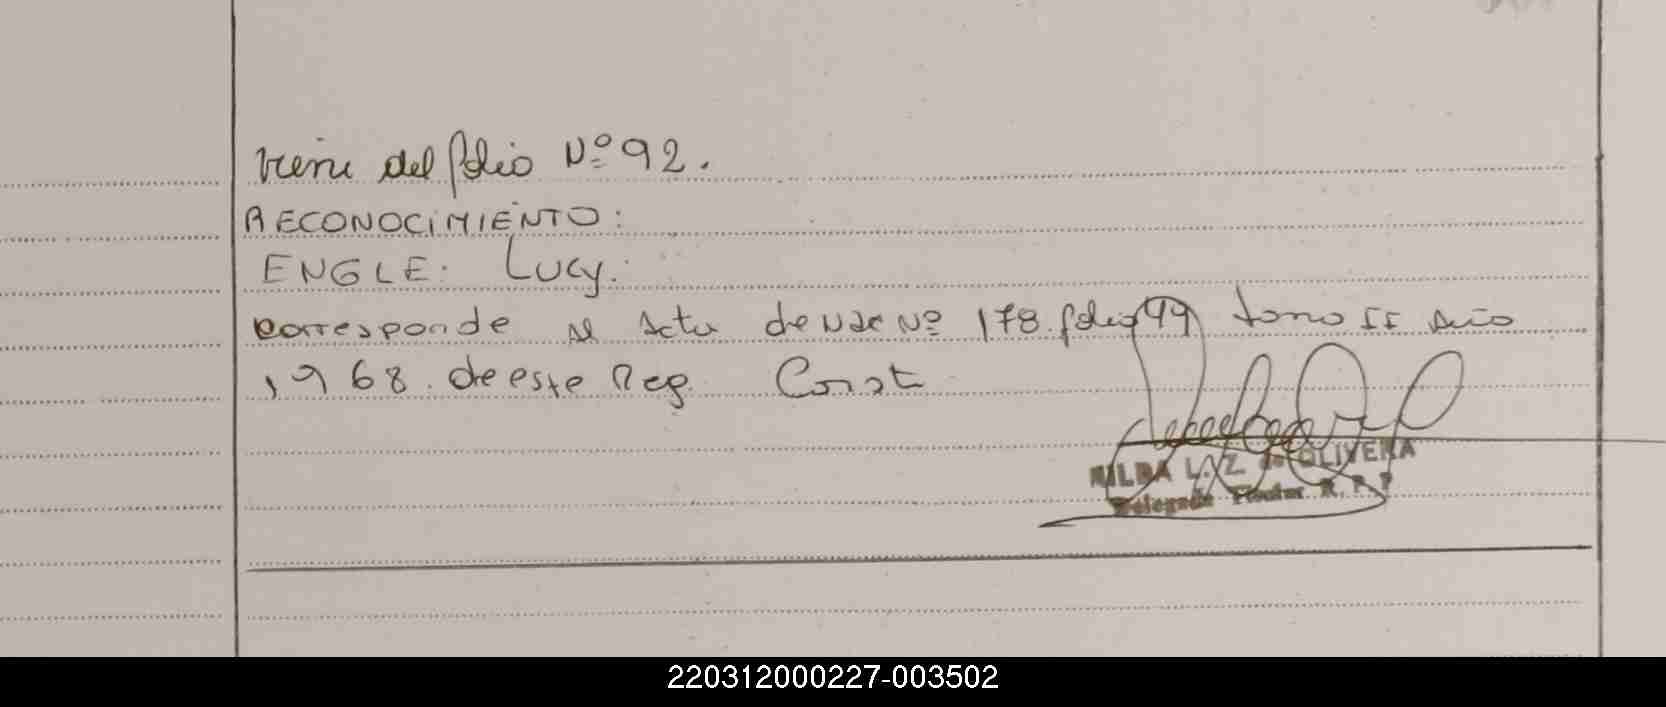 Viene del folio Nº 92.
RECONOCIMIENTO:
ENGLE: Lucy.
Corresponde al Acta de Nac Nº 178 folio 99 tomo II Año
1968. de este Reg. Const
HILDA L. Z. de OLIVERA
Delegada Titular R. P. P
220312000227-003502